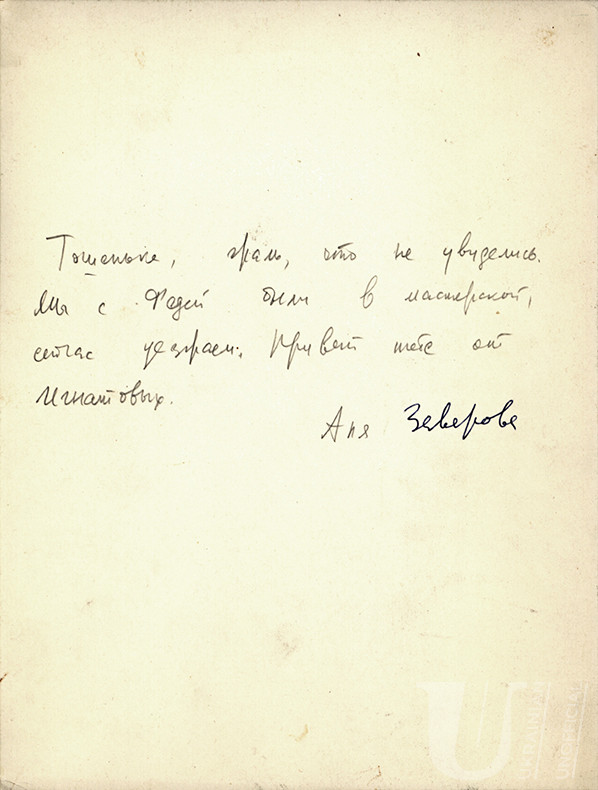 Тошенька, жаль, что не увиделись.
Мы с Федей были в мастерской,
сейчас уезжаем. Привет тебе от
Игнатовых.
Аня Заверова
UKRAINIAN
UNOFFICIAL